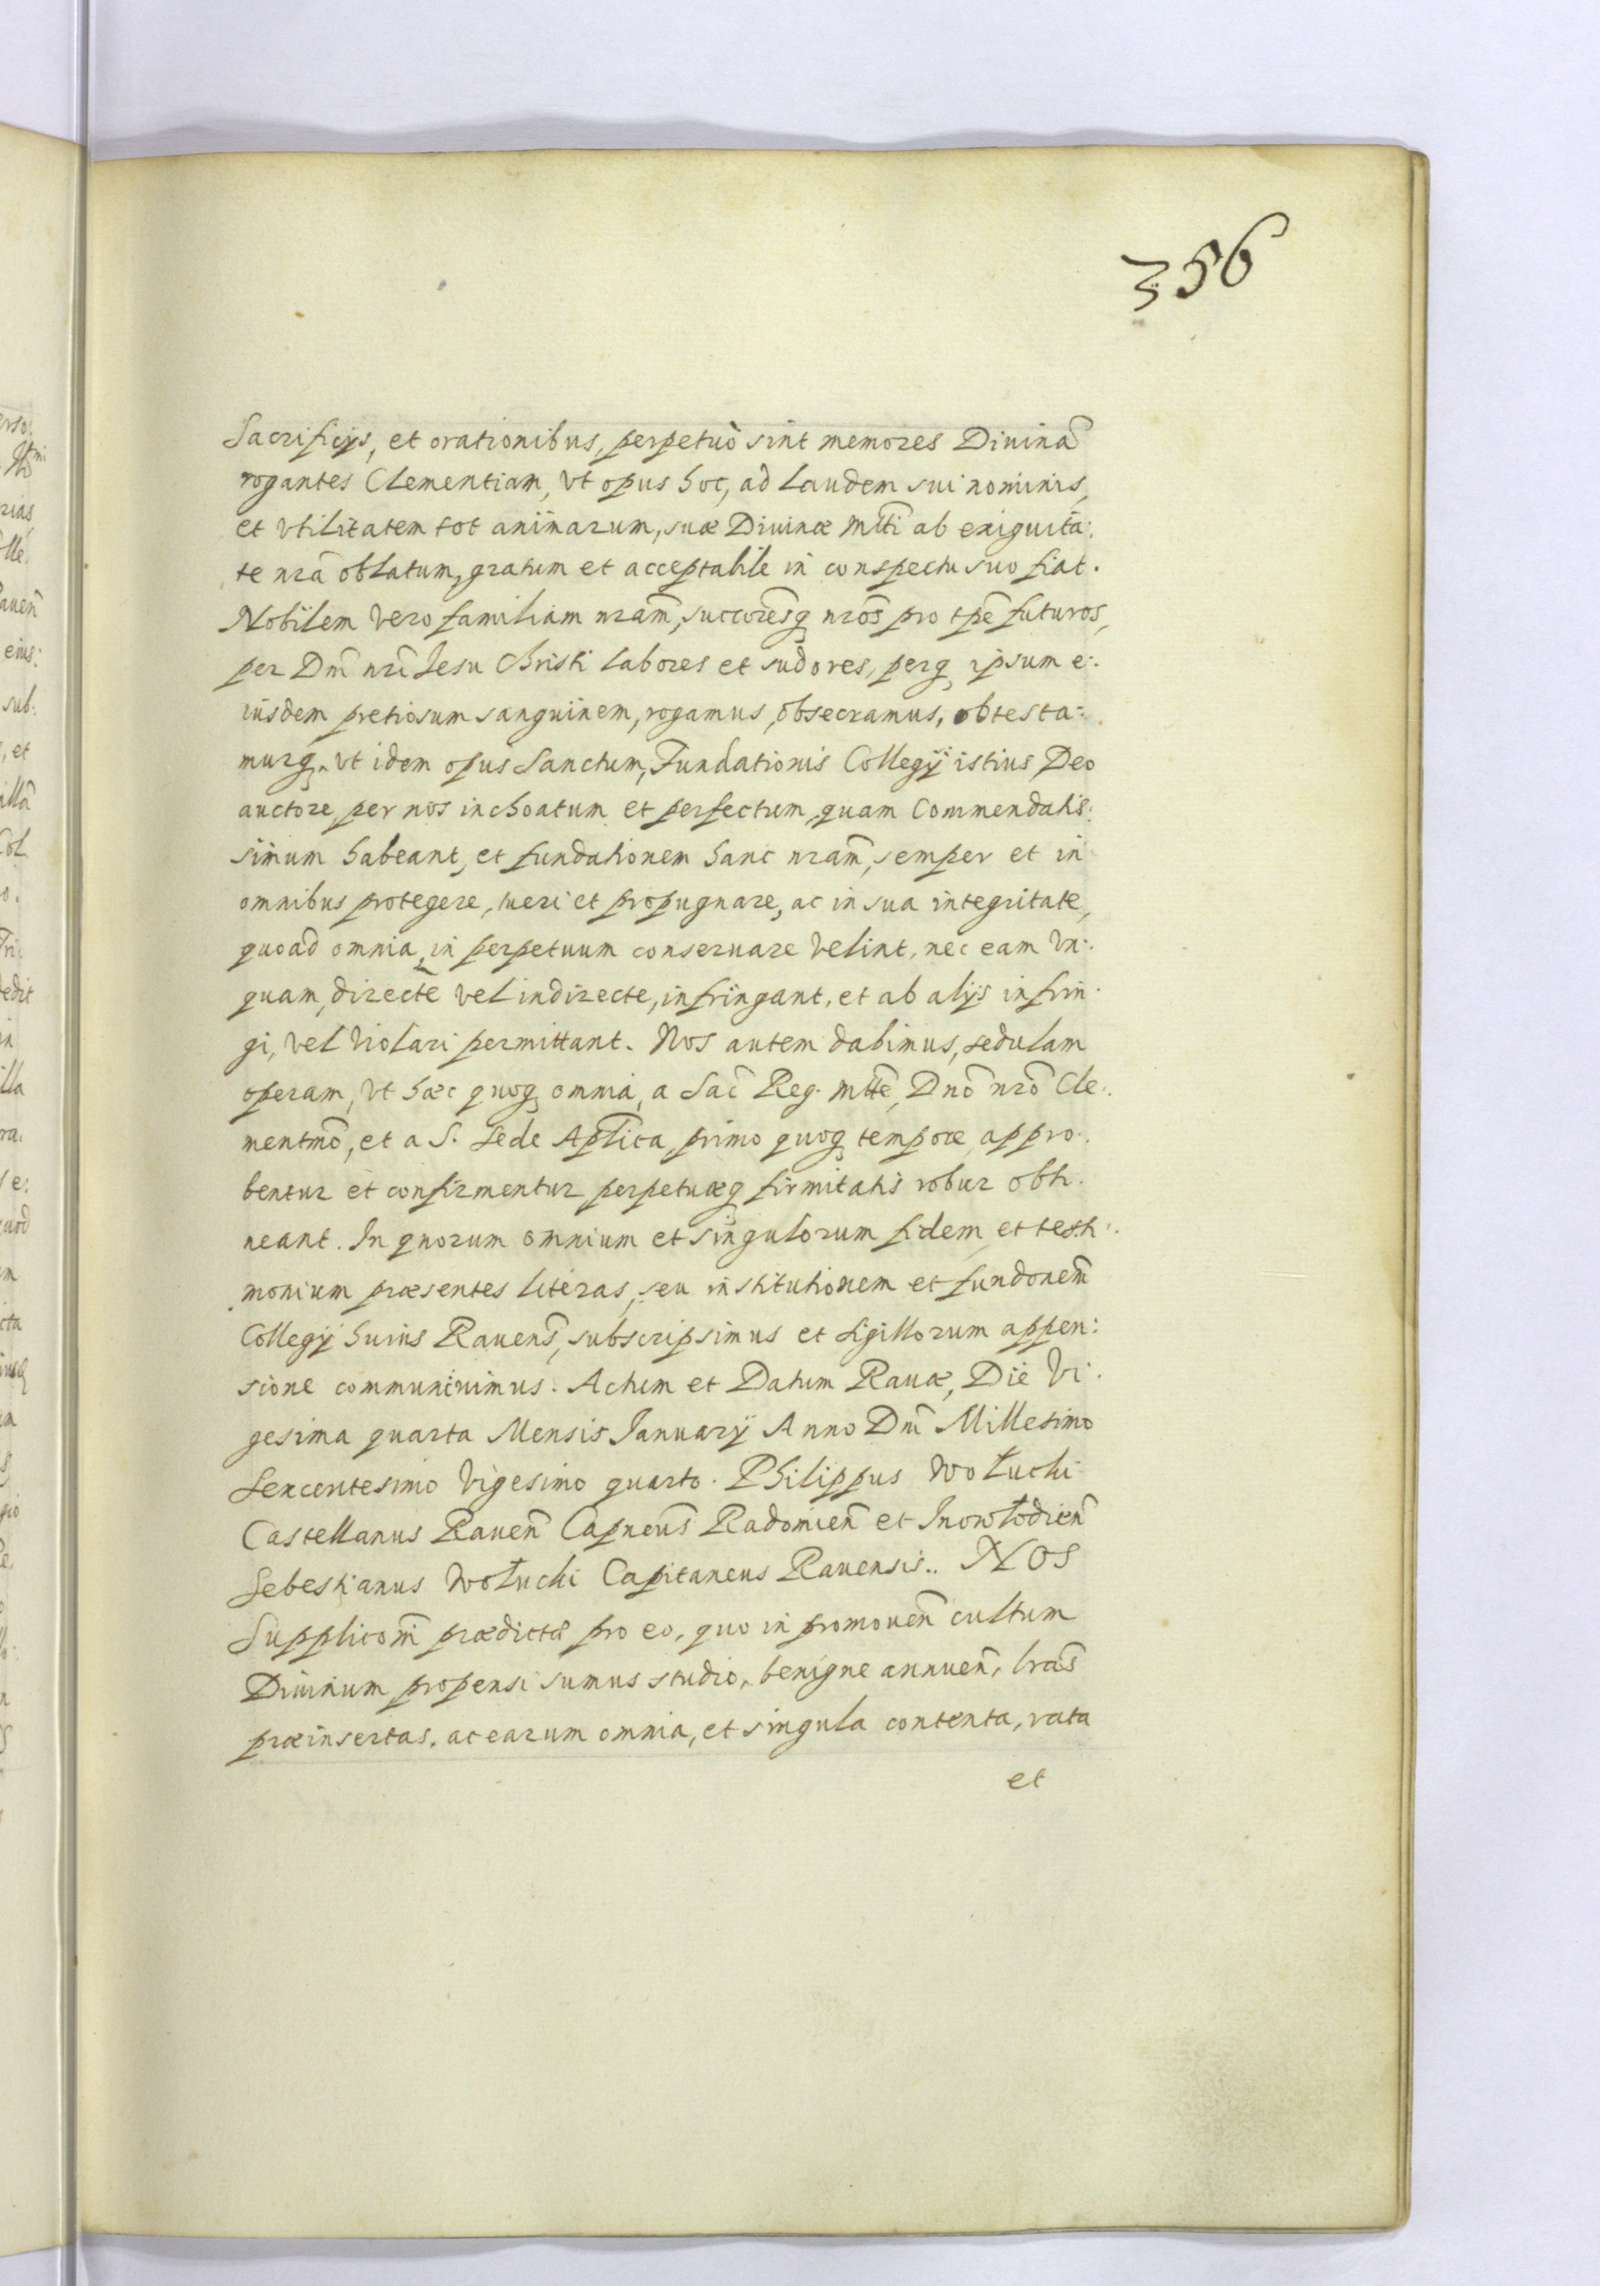 356
Sacrificijs, et orationibus, perpetuò sint memores Diuinã
rogantes Clementiam, vt opus hoc, ad laudem sui nominis,
et vtilitatem tot animarum, suæ Diuinæ Mtti ab exiguita:
te nrã oblatum, gratum et acceptabile in conspectu suo fiat.
Nobilem vero familiam nram̃, succoresq̃ nros̃ pro tpẽ futuros,
per Dnĩ nrĩ Jesu Christi labores et sudores, perq, ipsum e:
iusdem pretiosum sanguinem, rogamus, obsecramus, obtesta:
murq, vt idem opus Sanctum, Fundationis Collegij istius Deo
auctore, per nos inchoatum et perfectum, quam Commendatis:
simum habeant, et fundationem hanc nram̃, semper et in
omnibus protegere, tueri et propugnare, ac in sua integritate,
quoad omnia, in perpetuum conseruare velint, nec eam vn:
quam, directe vel indirecte, infringant, et ab alijs infrin:
gi, vel violari permittant. Nos autem dabimus, sedulam
operam, vt hæc quoq, omnia, a Sac̃ Reg. Mtte, Dnõ nrõ Cle:
mentmõ, et a S. Sede Aplica, primo quoq, tempore, appro:
bentur et confirmentur, perpetuæq, firmitatis robur obti:
neant. In quorum omnium et singulorum fidem, et testi:
monium præsentes literas, seu institutionem et fundonem̃
Collegij huius Rauens̃, subscripsimus et sigillorum appen:
sione communiuimus. Actum et Datum Rauæ, Die Vi:
gesima quarta Mensis Januarij Anno Dnĩ Millesimo
Sexcentesimo Vigesimo quarto. Philippus Wołuchi
Castellanus Rauen̄ Capneus̃ Radomien̄ et Inowłodien̄
Sebestianus Wołuchi Capitaneus Rauensis.. NOS
Supplicoñi prædictæ pro eo, quo in promouen̄ cultum
Diuinum propensi sumus studio, benigne annuen̄, lras̃
præinsertas, ac earum omnia, et singula contenta, rata
et